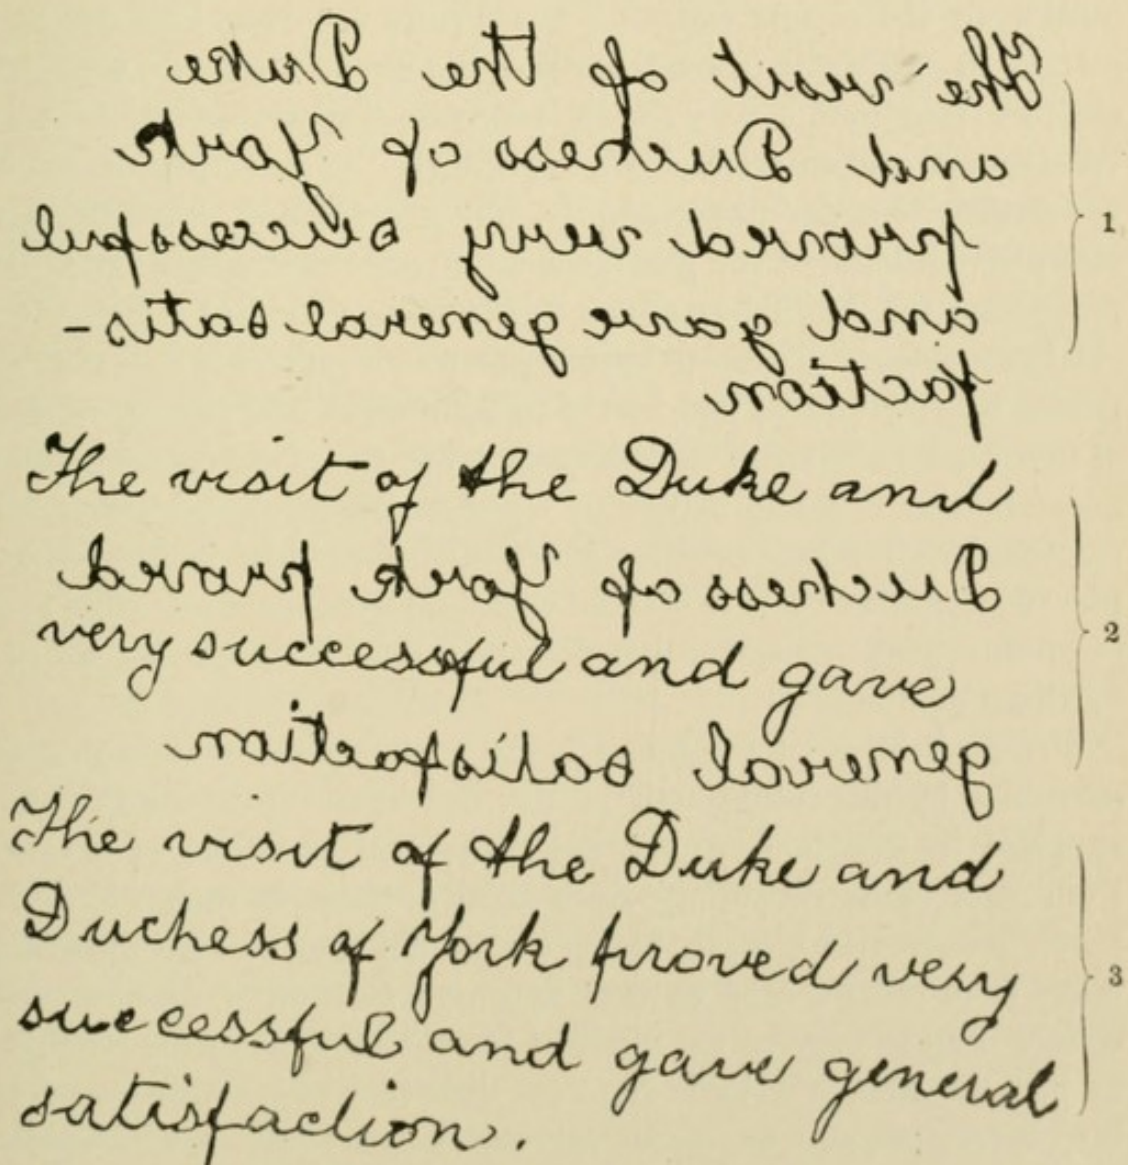 The visit of the Duke
and Duchess of York
proved very successful
and gave general satis-
faction
1
The visit of the Duke and
Duchess of York proved
very successful and gave
general satisfaction
2
The visit of the Duke and
Duchess of York proved very
successful and gave general
satisfaction.
3